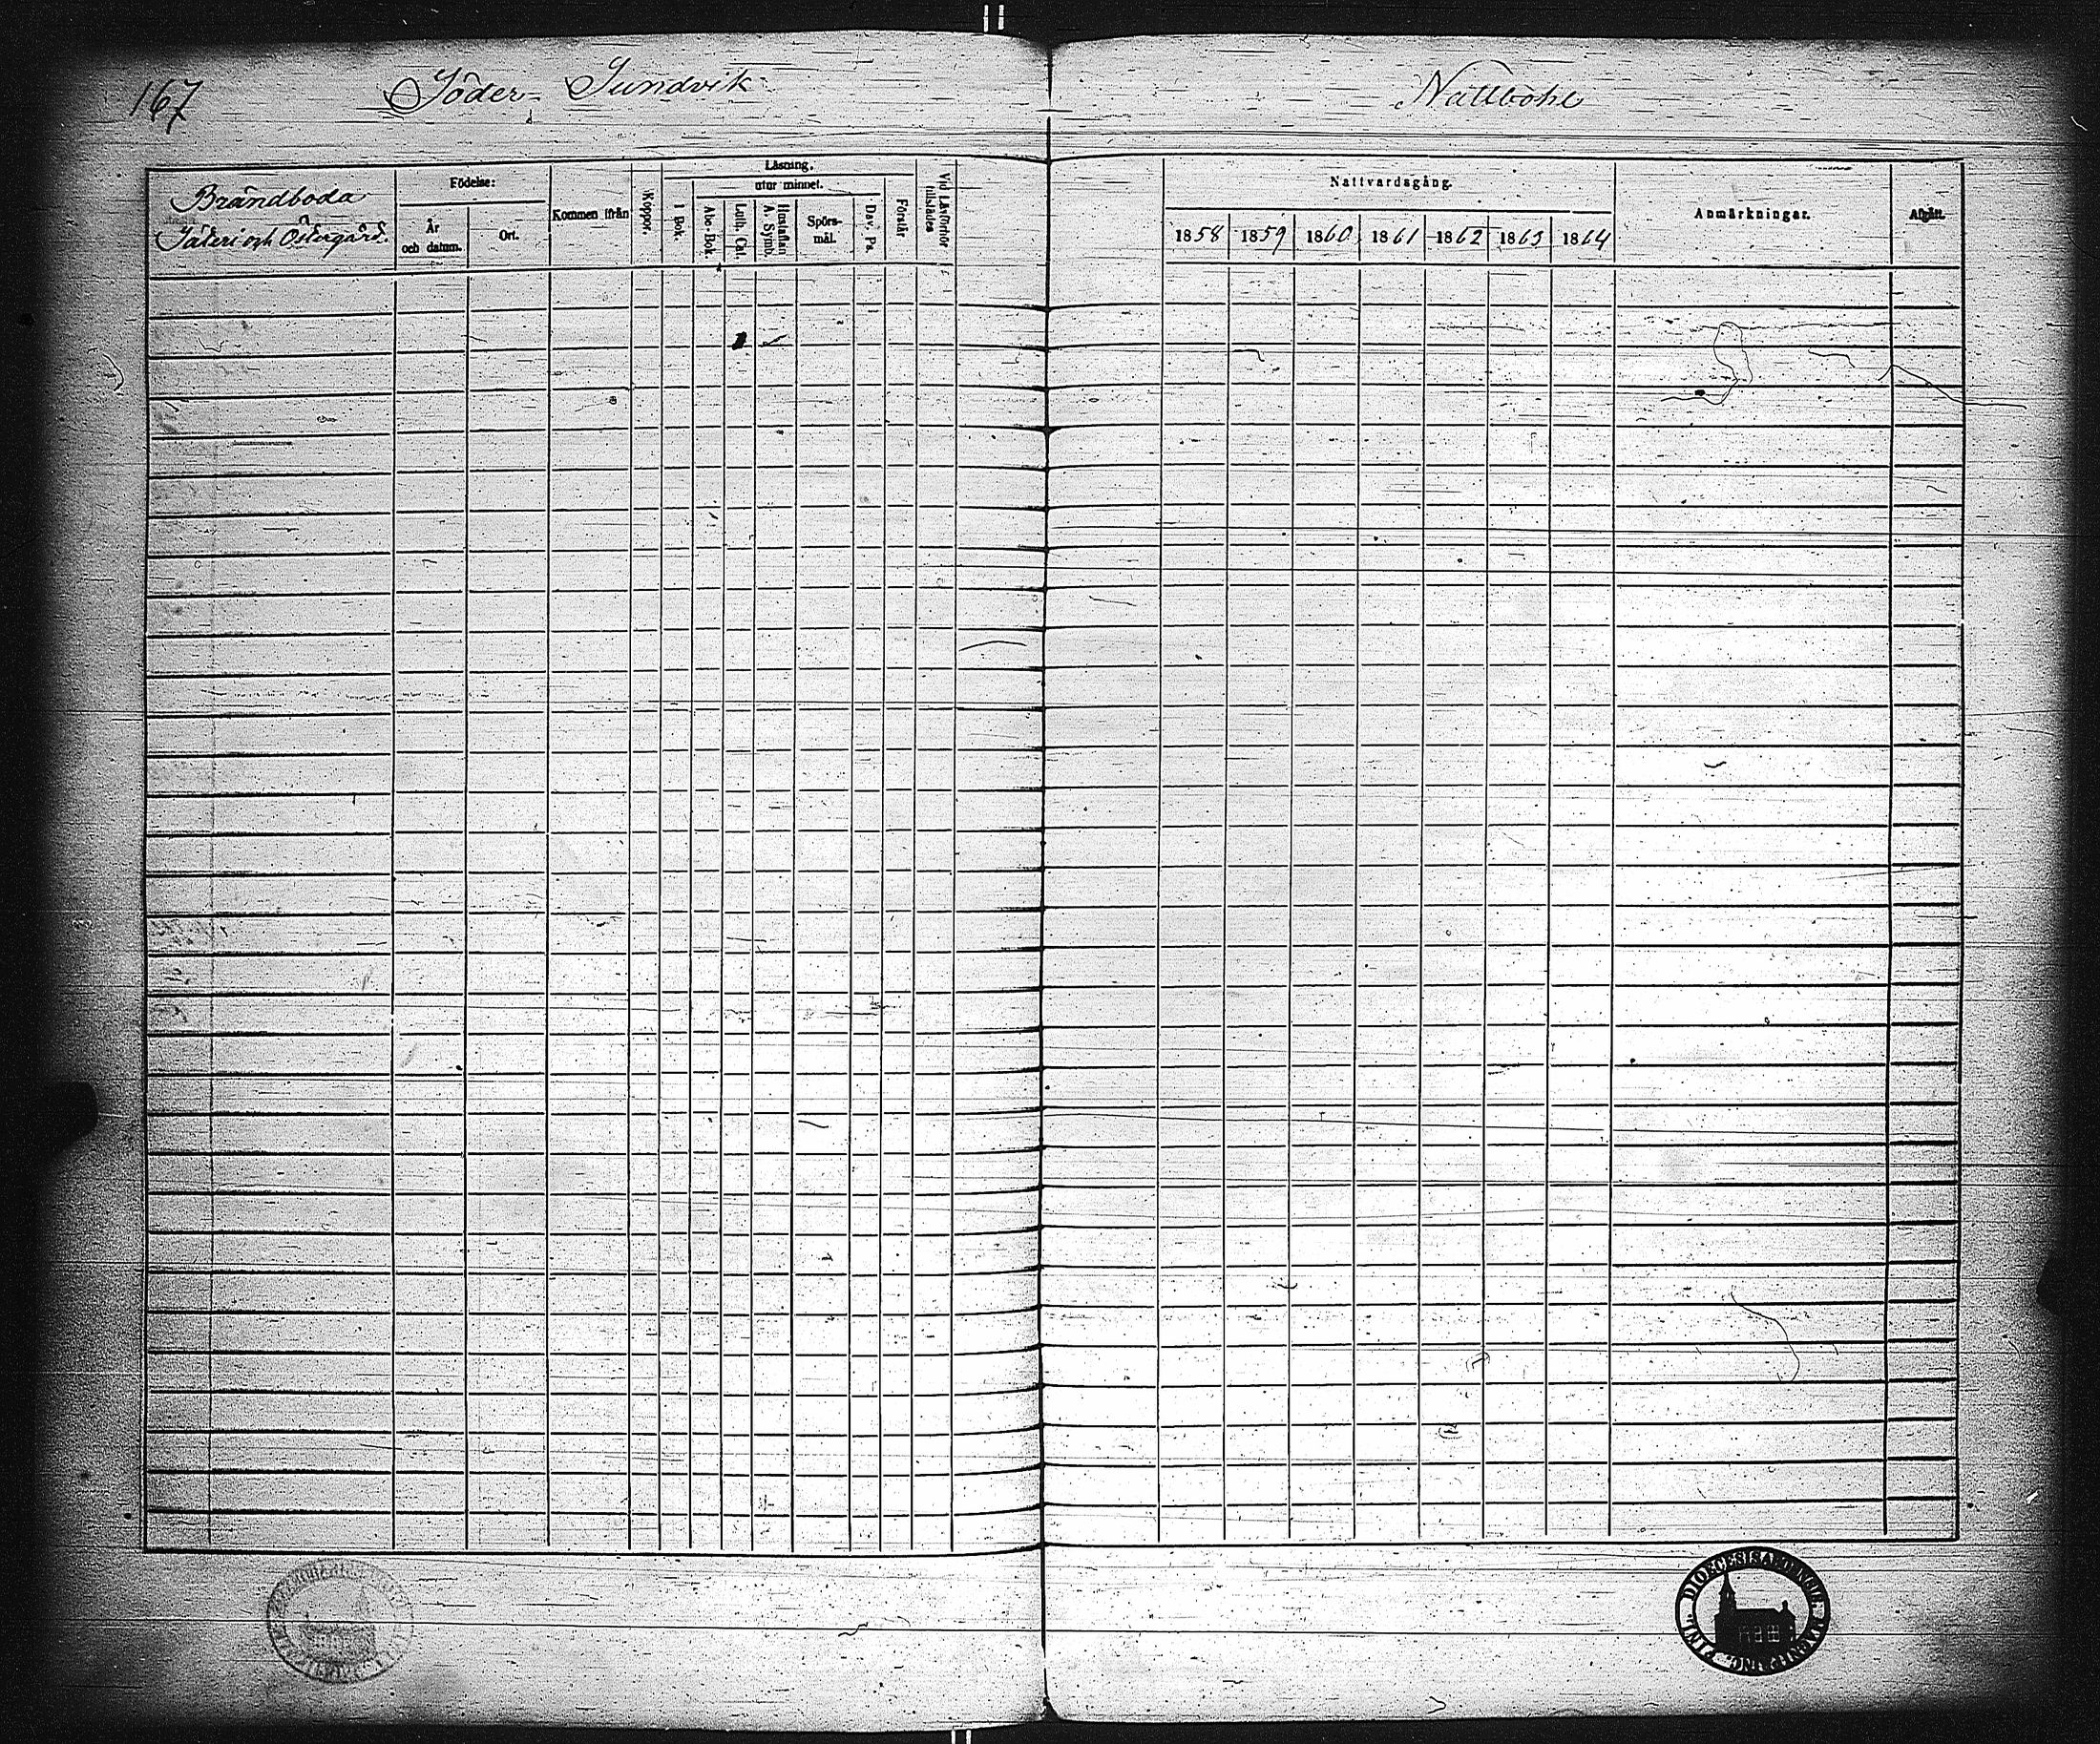 167
Söder- Sundvik
Nattbohl
Brändboda
Säteri och Östergård.
Födelse:
År
och datum.
Ort.
Kommen ifrån
Koppor.
Läsning.
utur minnet.
I Bok.
Abc-Bok.
Luth. Cat.
Hustaflan
A. Symb.
Spörs-
mål.
Dav. Ps.
Förstår
Vid Läsförhör
tillstädes
Nattvardsgång.
1858 1859 1860 1861 1862 1863 1864
Anmärkningar.
Afgått.